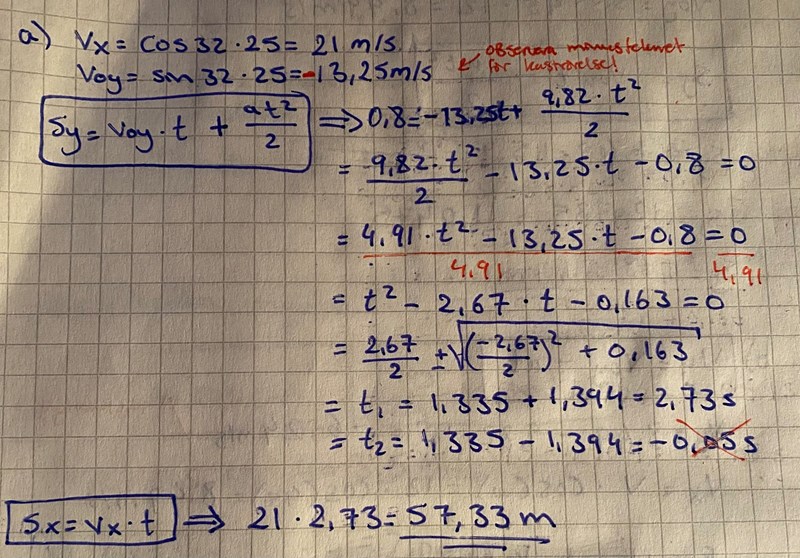 a) Vx = cos 32 · 25 = 21 m/s
Voy = sin 32 · 25 = -13,25 m/s
observera minustecknet för kaströrelse!
Sy = Voy · t + at²/2 ⇒ 0,8 = -13,25t + 9,82 · t²/2
= 9,82 · t²/2 - 13,25 · t - 0,8 = 0
= 4,91 · t² - 13,25 · t - 0,8 = 0
4,91 4,91
= t² - 2,67 · t - 0,163 = 0
= 2,67/2 ± √((-2,67/2)² + 0,163)
= t₁ = 1,335 + 1,394 = 2,73 s
= t₂ = 1,335 - 1,394 = -0,05 s
Sx = Vx · t ⇒ 21 · 2,73 = 57,33 m